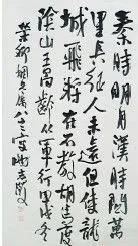 秦時明月漢時關萬
里長征人未還但使龍
城飛將在不教胡馬度
陰山王昌齡從軍行戌冬
八十三叟